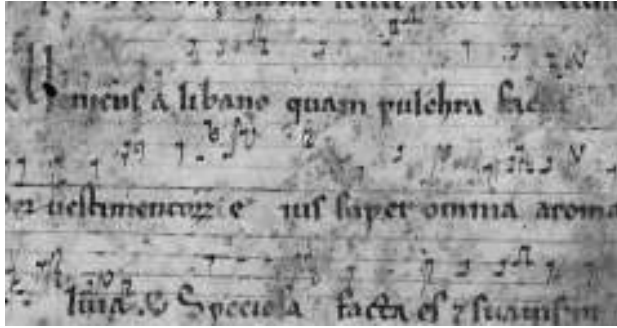 ueniens a libano quam pulchra facta
uestimentorum e ius super omnia aroma
Speciosa facta es ⁊ suauis in